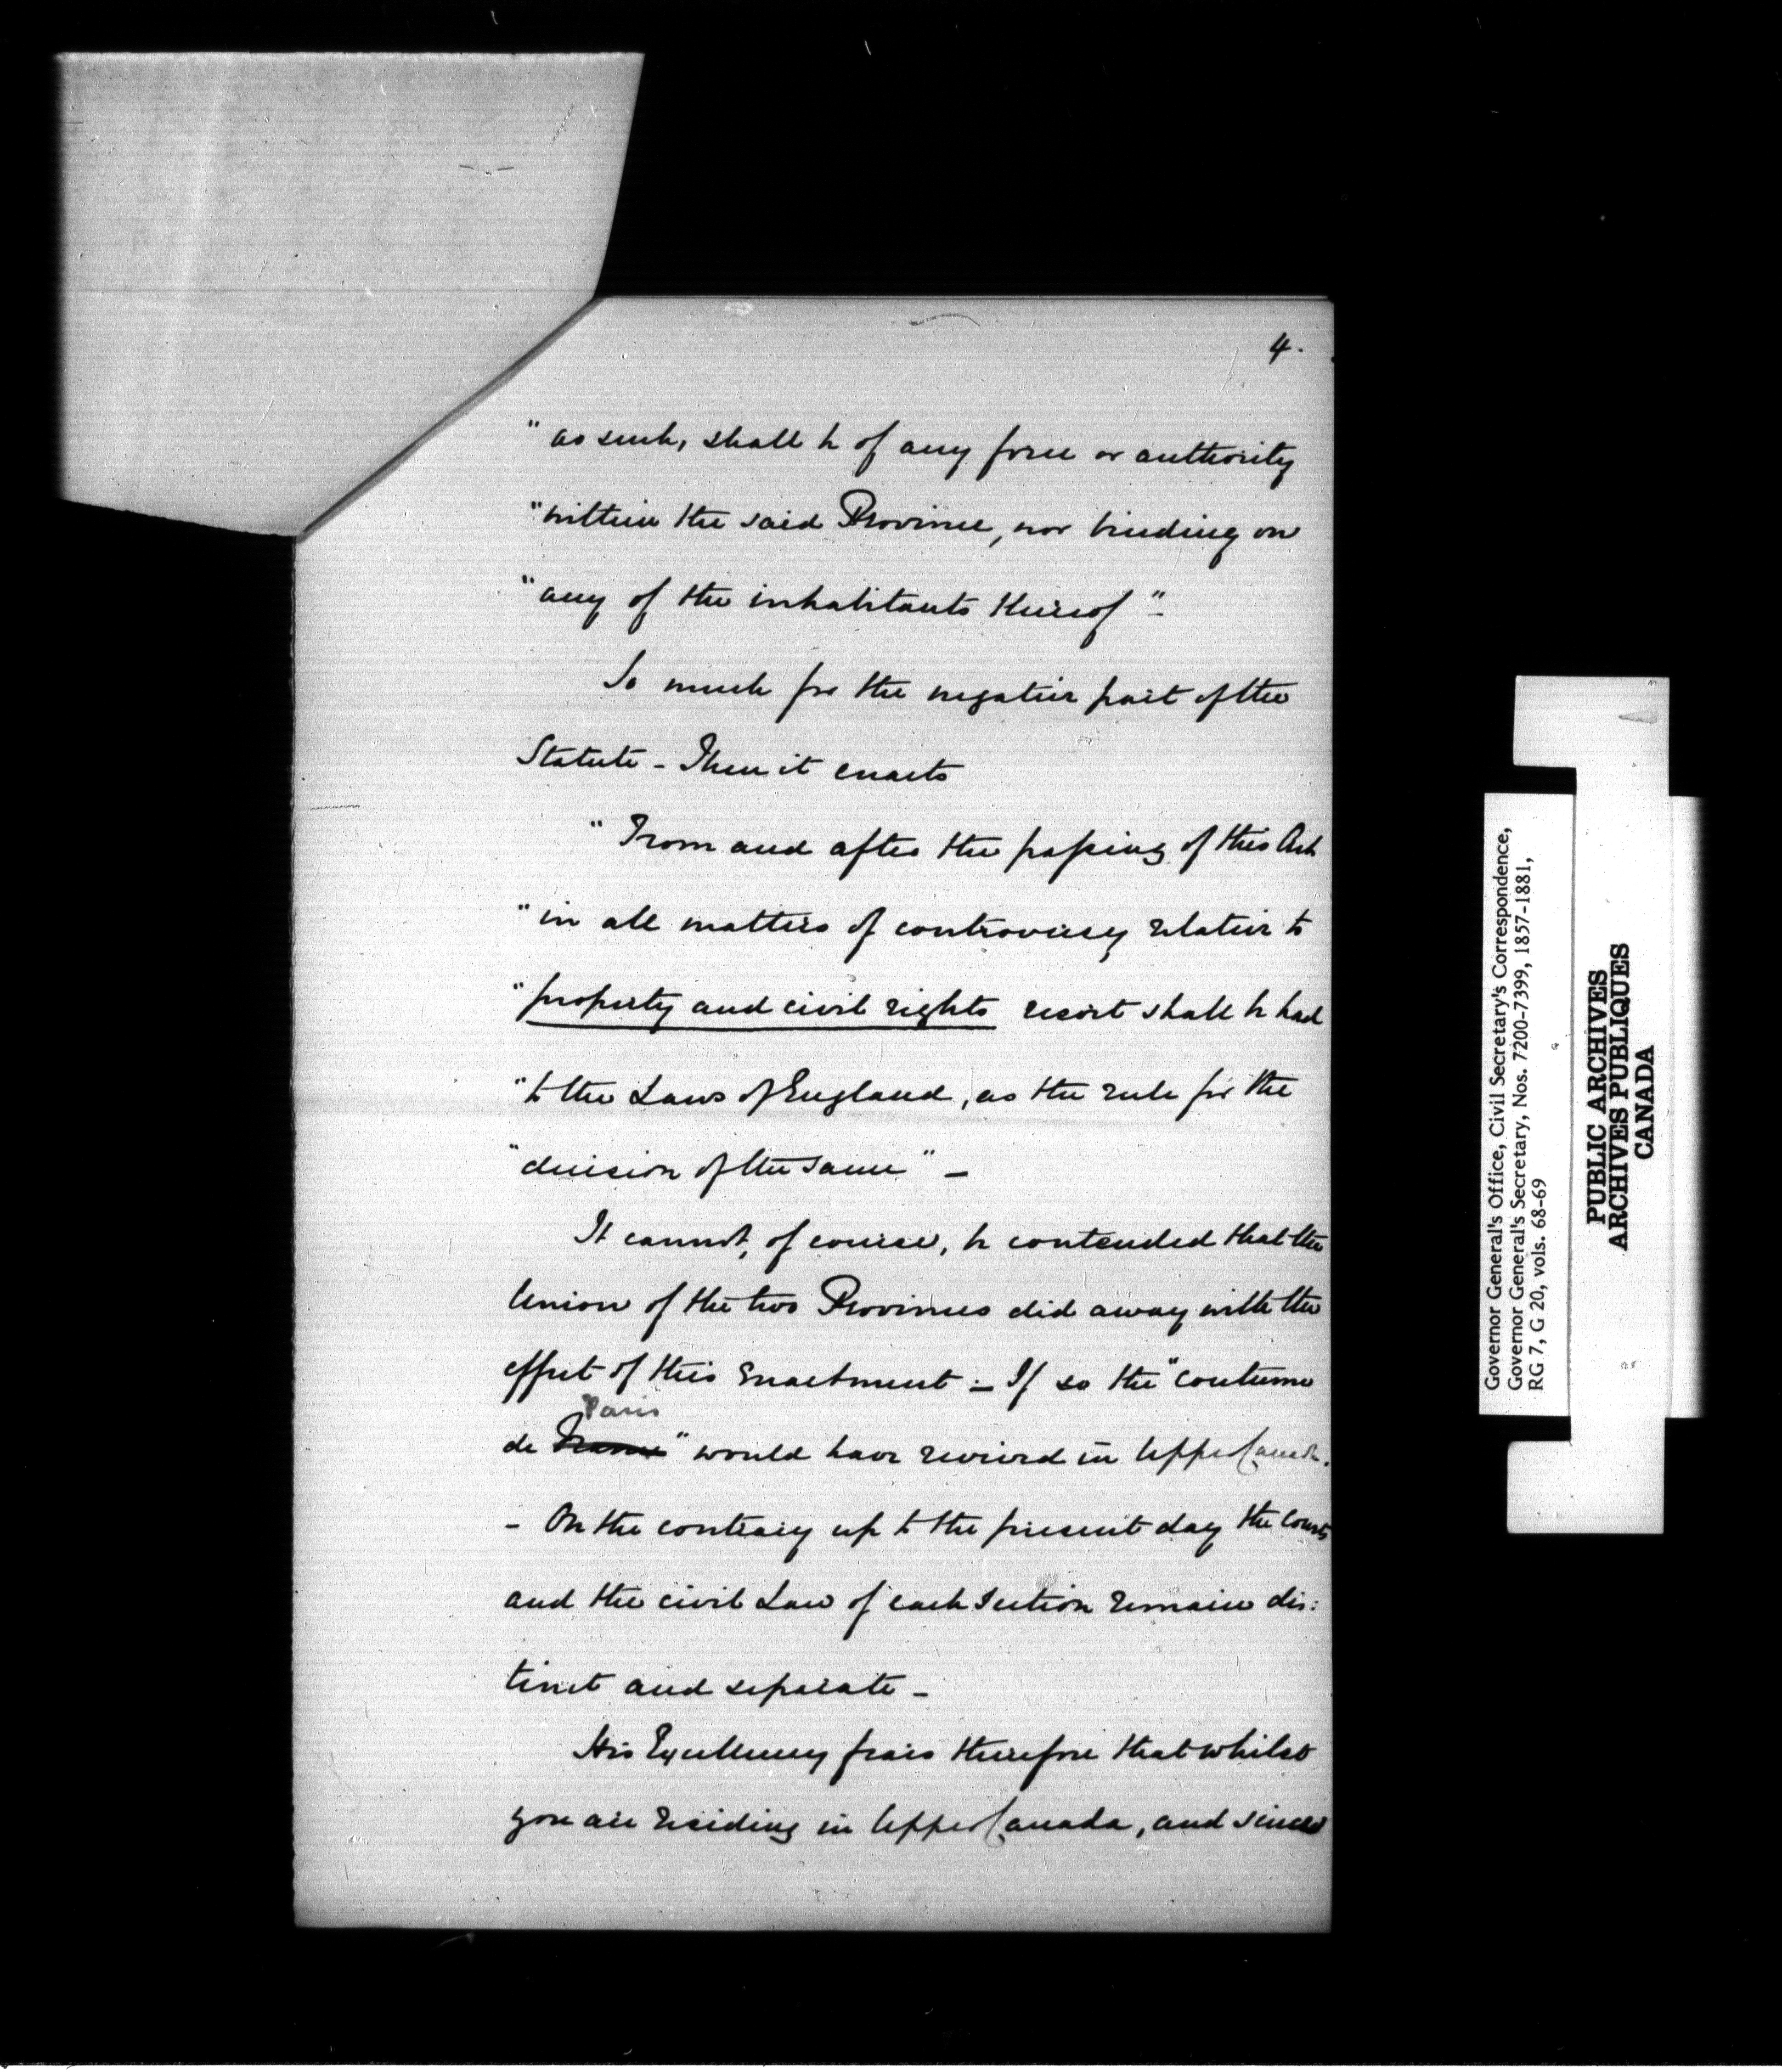 4.
"as such, shall be of any force or authority
"within the said Province, nor binding on
"any of the inhabitants thereof"-
So much for the negative part of the
Statute - Then it enacts
"From and after the passing of this Act
"in all matters of controversy relative to
"property and civil rights resort shall be had
"to the Laws of England, as the rule for the
"decision of the same" -
It cannot, of course, be contended that the
Union of the two Provinces did away with the
effect of this Enactment - If so the "coutume
Paris
de France" would have revived in Upper Canada.
- On the contrary up to the present day the Courts
and the civil Law of each Section remain dis:
tinct and separate -
His Excellency fears therefore that whilst
you are residing in Upper Canada, and since
Governor General's Office, Civil Secretary's Correspondence,
Governor General's Secretary, Nos. 7200-7399, 1857-1881,
RG 7, G 20, vols. 68-69
PUBLIC ARCHIVES
ARCHIVES PUBLIQUES
CANADA